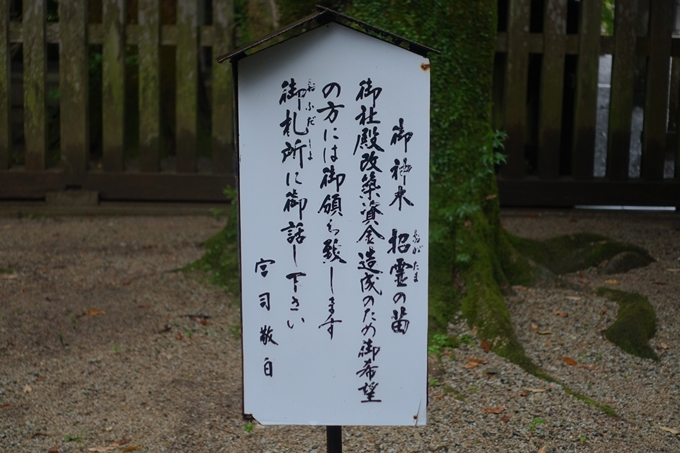 御神木 招霊の苗
おがたま
御社殿改築資金造成のため御希望
の方には御頒ち致します
御札所に御話し下さい
おふだしょ
宮司敬白